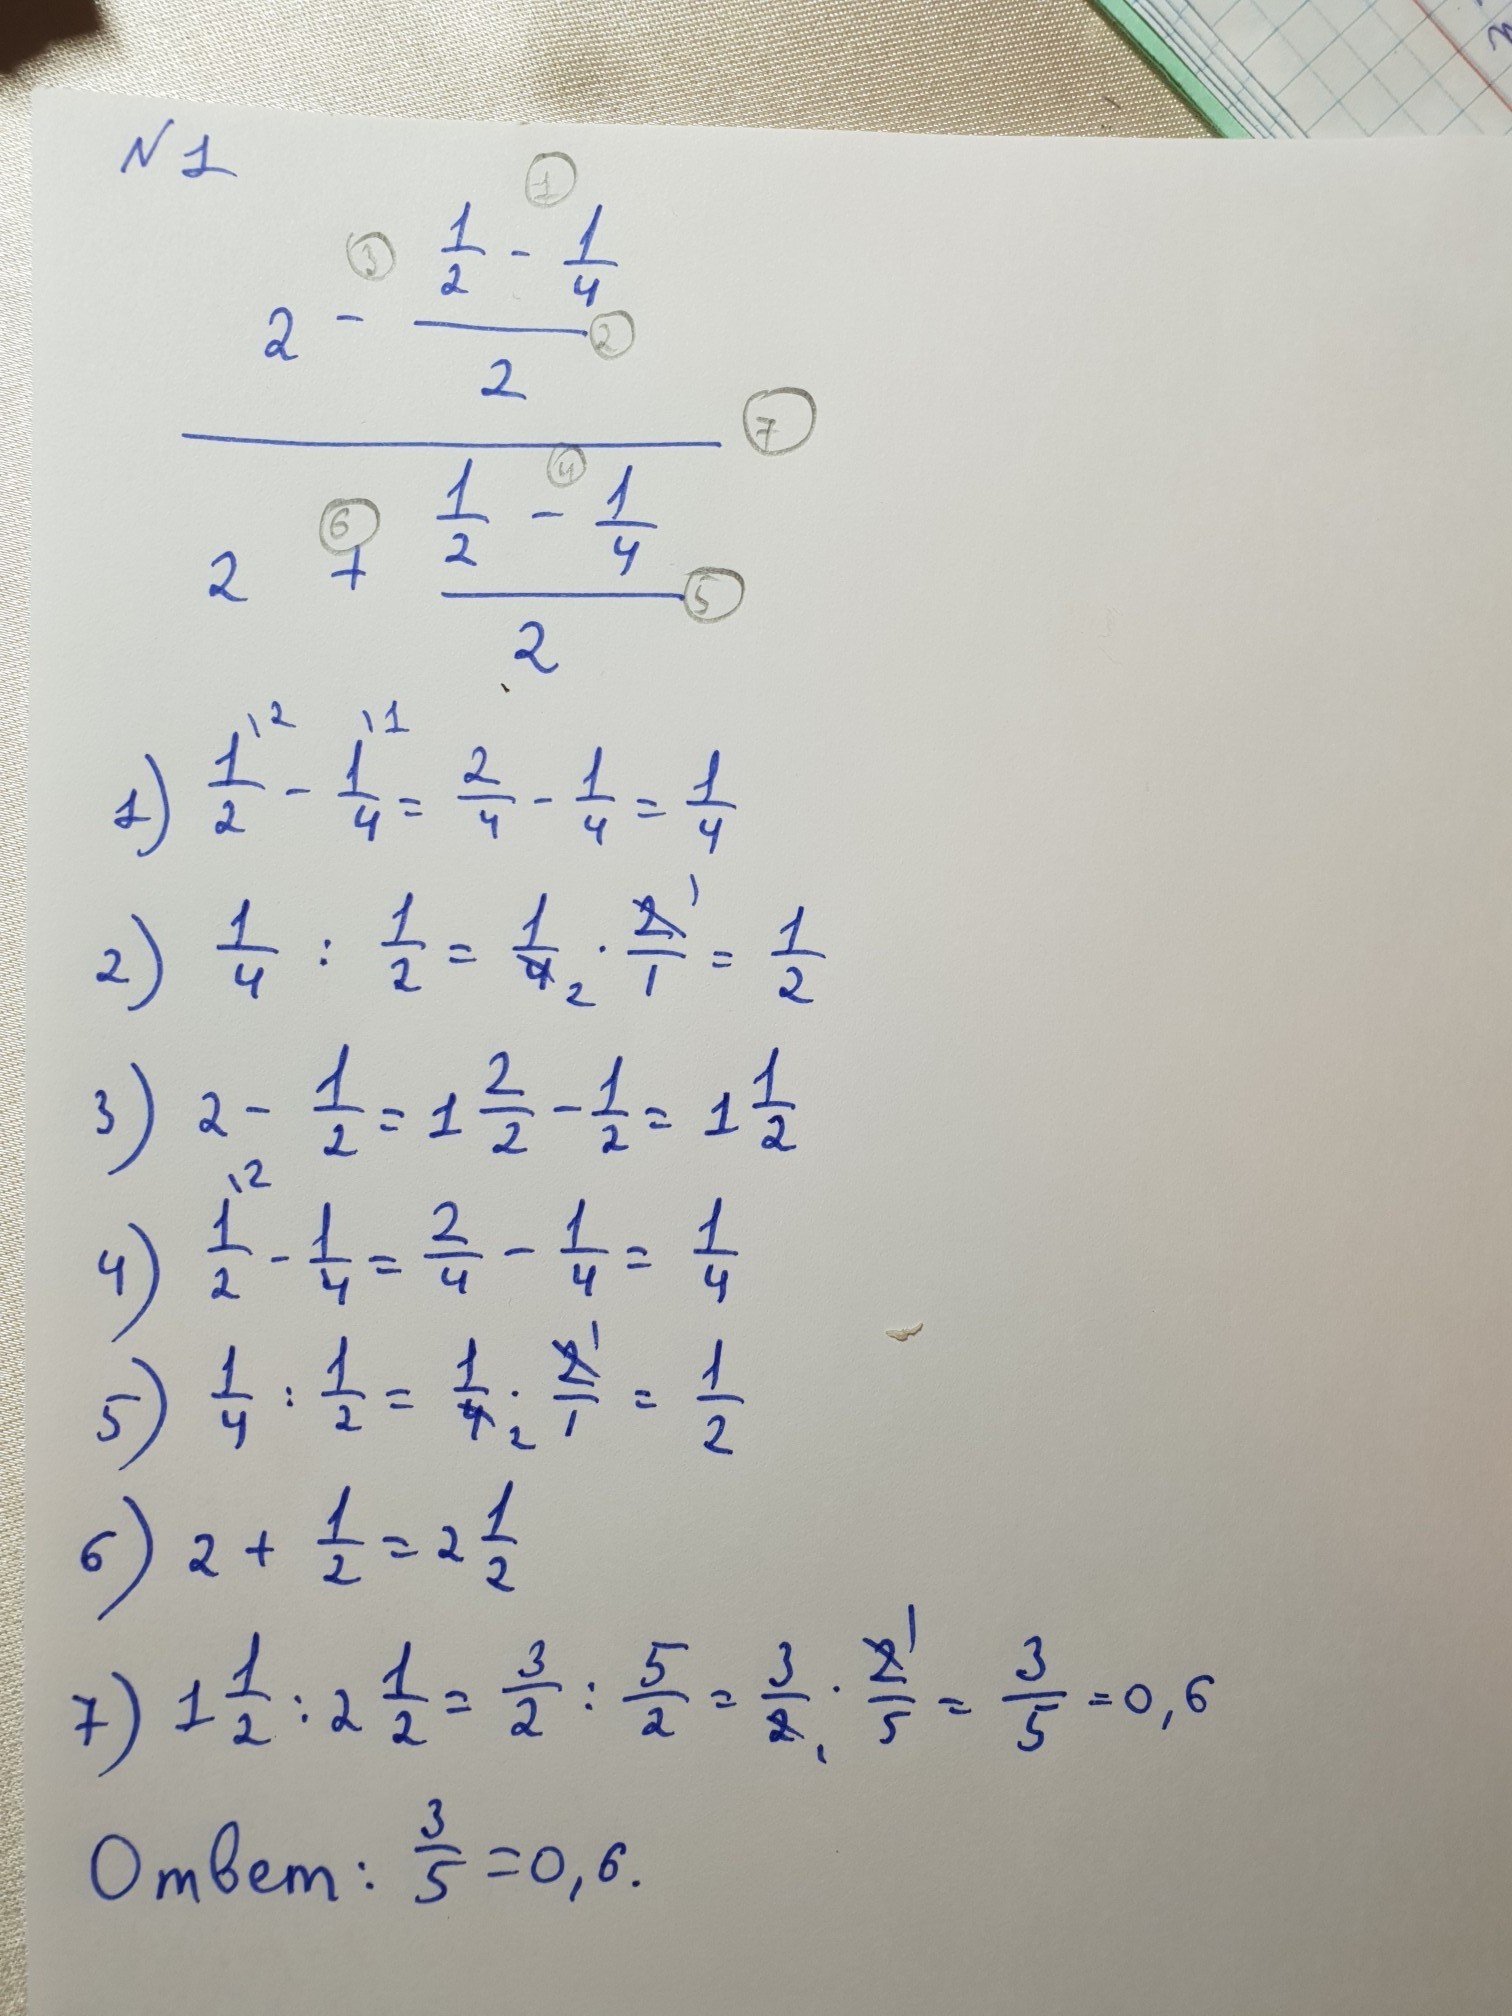 N 1
2 - (1/2 - 1/4)/2
2 + (1/2 - 1/4)/2
① ② ③ ④ ⑤ ⑥ ⑦
1) 1/2 \2 - 1/4 \1 = 2/4 - 1/4 = 1/4
2) 1/4 : 1/2 = 1/4 2 · 2/1 1 = 1/2
3) 2 - 1/2 = 1 2/2 - 1/2 = 1 1/2
4) 1/2 \2 - 1/4 = 2/4 - 1/4 = 1/4
5) 1/4 : 1/2 = 1/4 2 · 2/1 1 = 1/2
6) 2 + 1/2 = 2 1/2
7) 1 1/2 : 2 1/2 = 3/2 : 5/2 = 3/2 1 · 2/5 1 = 3/5 = 0,6
Ответ: 3/5 = 0,6.